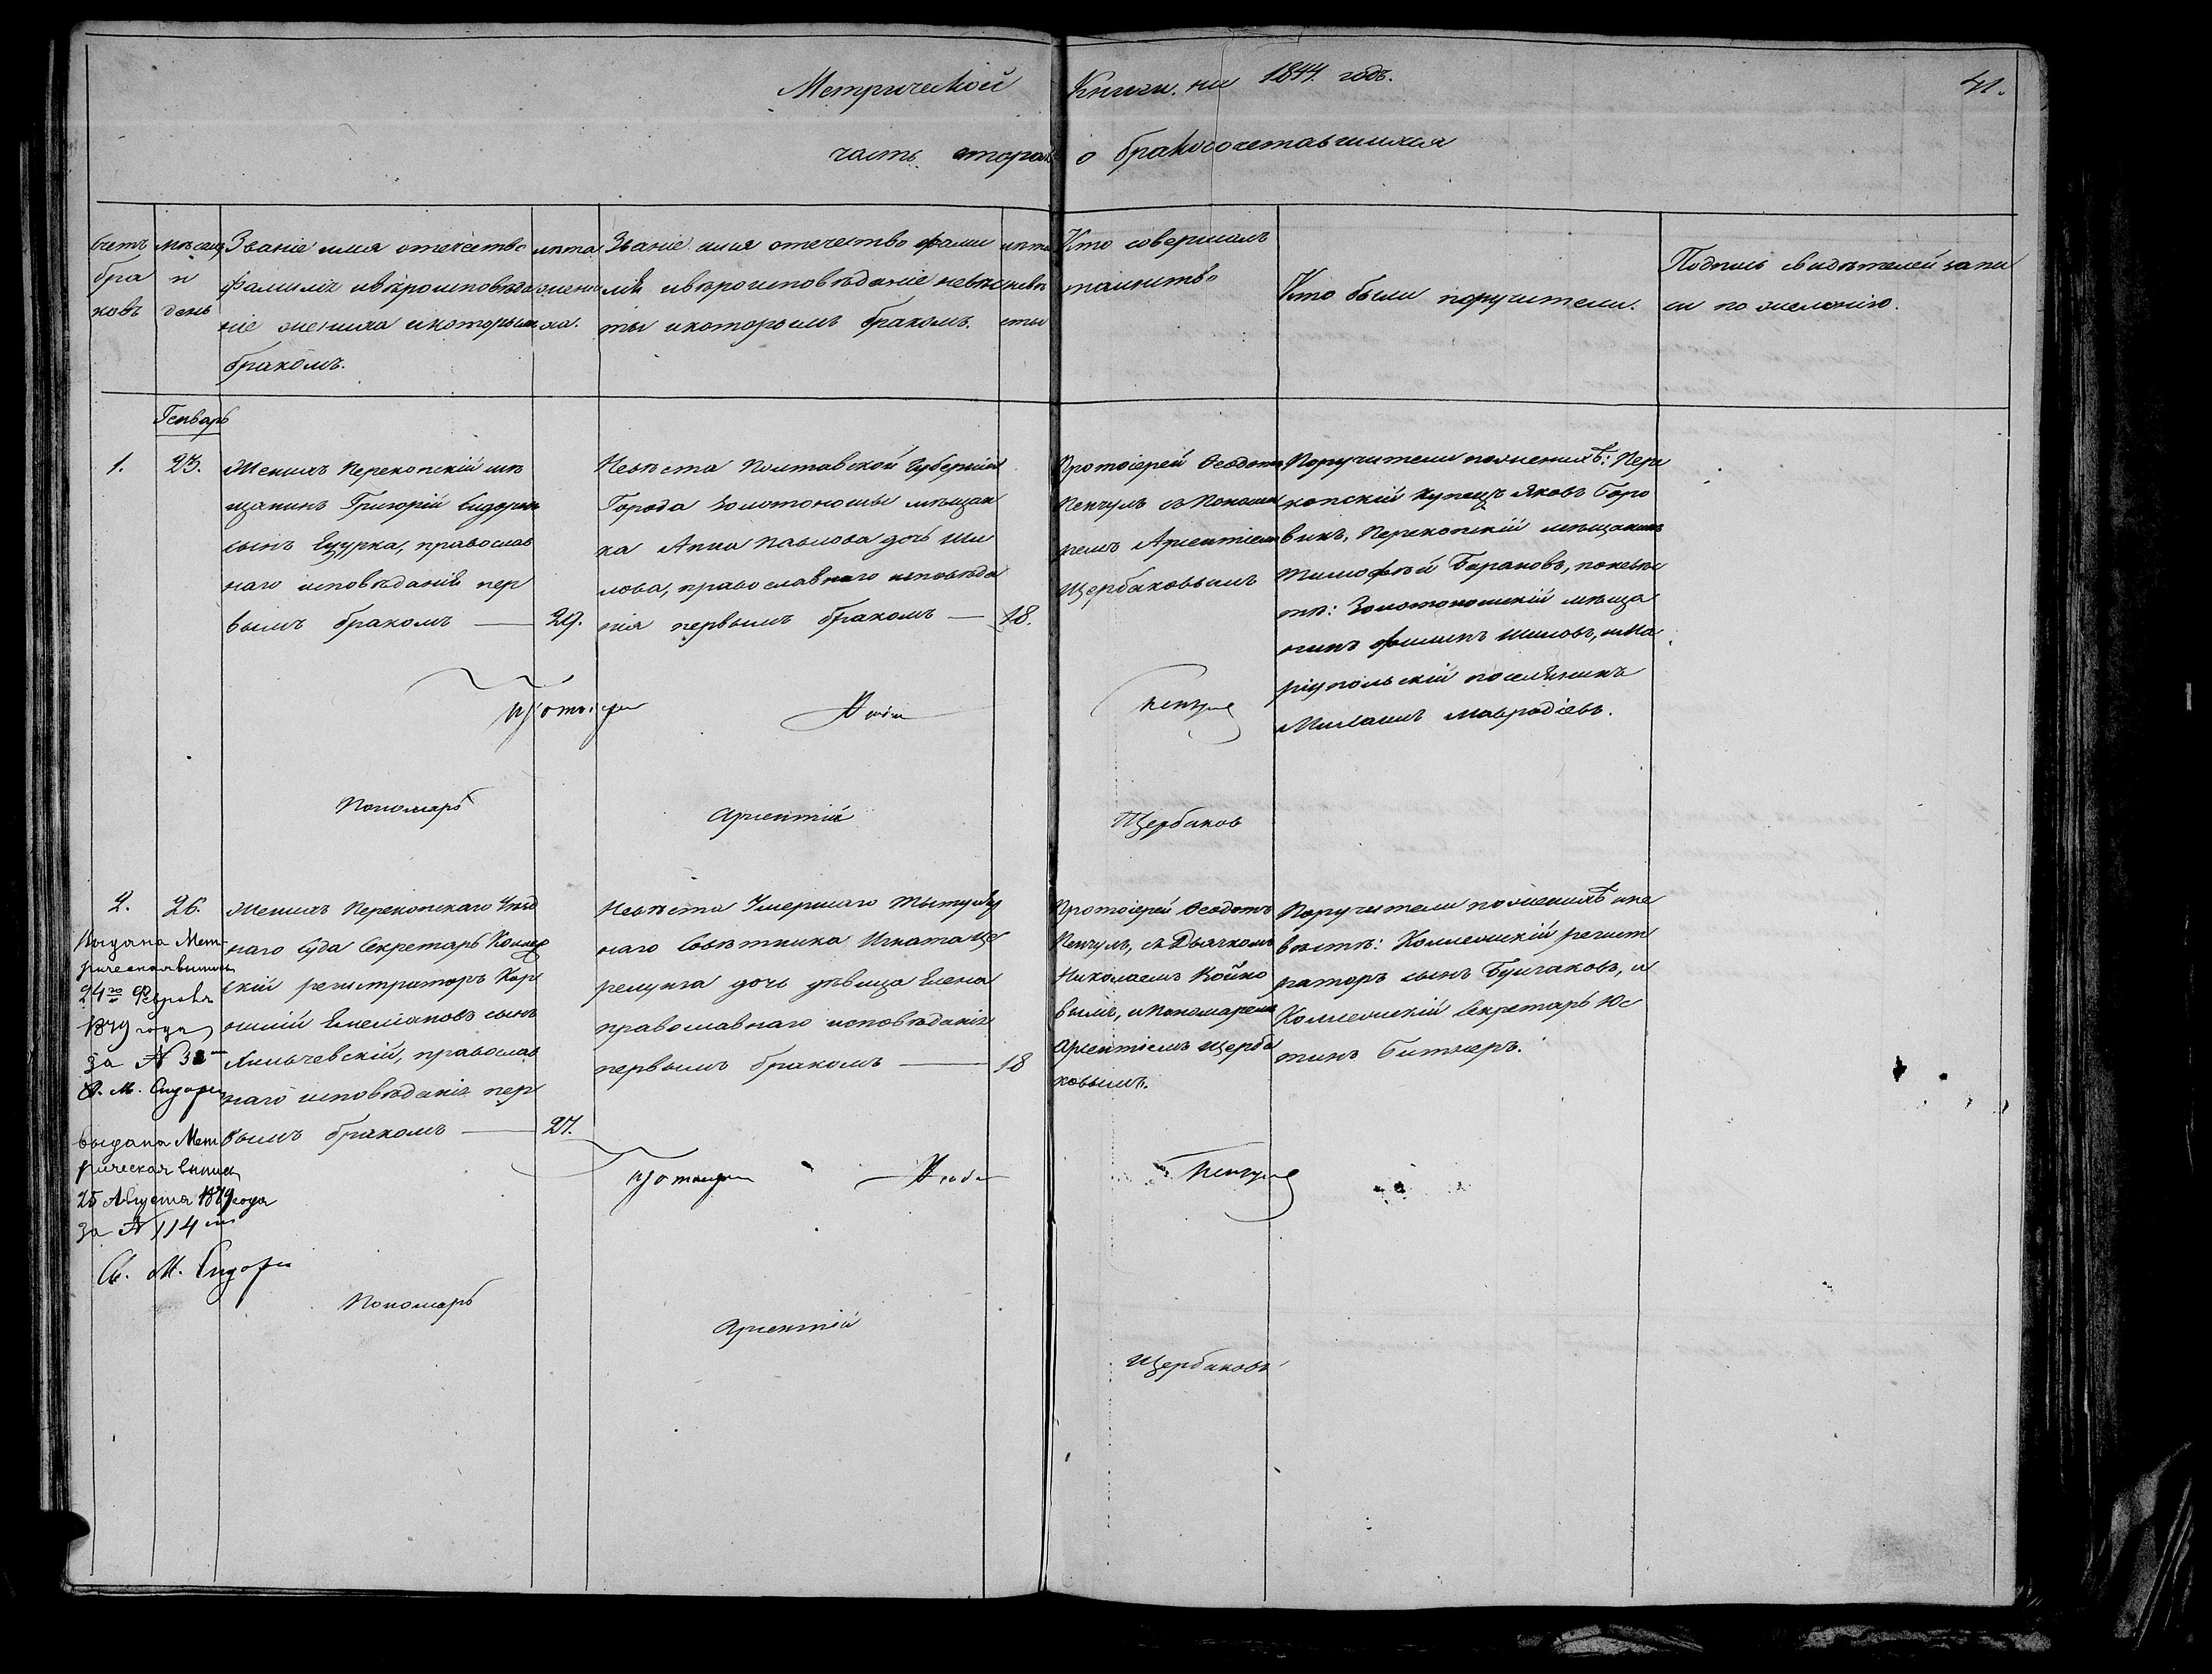 Метрической Книги на 1844. годъ.
41.
часть вторая о бракосочетавшихся
Счетъ
бра
ковъ
мѣсяцъ
и
день
Званіе имя отечество
фамилія и вѣроисповѣда
ніе жениха и которымъ
бракомъ.
лѣта
жени
ха.
Званіе имя отечество фами
лія и вѣроисповѣданіе невѣс
ты и которымъ бракомъ.
лѣта
невѣ
сты
Кто совершалъ
таинство
Кто были поручители.
Подпись свидѣтелей запи
си по желанію.
Генварь
1.
23.
Женихъ Перекопскій мѣ
щанинъ Григорій Сидоровъ
сынъ Ецурка, православ
наго исповѣданія пер
вымъ бракомъ —
29.
Невѣста Полтавской Губерніи
Города Золотоноши мѣщан
ка Анна Павлова дочь Ши
лова, православнаго исповѣда
нія первымъ бракомъ —
18.
Протоіерей Ѳеодотъ
Пенчулъ съ Понома
ремъ Арсентіемъ
Щербаковымъ
Поручители по женихѣ: Пере
копскій Купецъ Яковъ Боро
викъ, Перекопскій мѣщанинъ
Тимофѣй Барановъ, по невѣс
тѣ: Золотоношскій мѣща
нинъ Филипъ Шиловъ, и Ма
ріупольскій поселянинъ
Михаилъ Мавродіевъ.
Протоіерей
Пенчулъ
Пономарь
Арсентій
Щербаков
2.
26.
Женихъ Перекопскаго Уѣзд
наго Суда Секретарь Коллеж
скій регистраторъ Кор
нилій Емельяновъ сынъ
Хильчевскій, православ
наго исповѣданія пер
вымъ бракомъ —
27.
Невѣста Умершаго Титуляр
наго Совѣтника Игната Це
релунга дочь дѣвица Елена
православнаго исповѣданія
первымъ бракомъ —
18
Протоіерей Ѳеодотъ
Пенчулъ, съ Дьячкомъ
Николаемъ Койко
вымъ, и Пономаремъ
Арсентіемъ Щерба
ковымъ.
Поручители по женихѣ и не
вѣстѣ: Коллежскій регист
раторъ сынъ Булгаковъ, и
Коллежскій Секретарь Юс
тинъ Битнеръ.
Выдана Мет
рическая выпись
24го Февраля
1879 года
за №
С. М. Сидоре
выдана Мет
рическая выпись
25 Августа 1879 года
за № 114
Св. М. Сидоре
Протоіерей
Пенчулъ
Пономарь
Арсентій
Щербаковъ